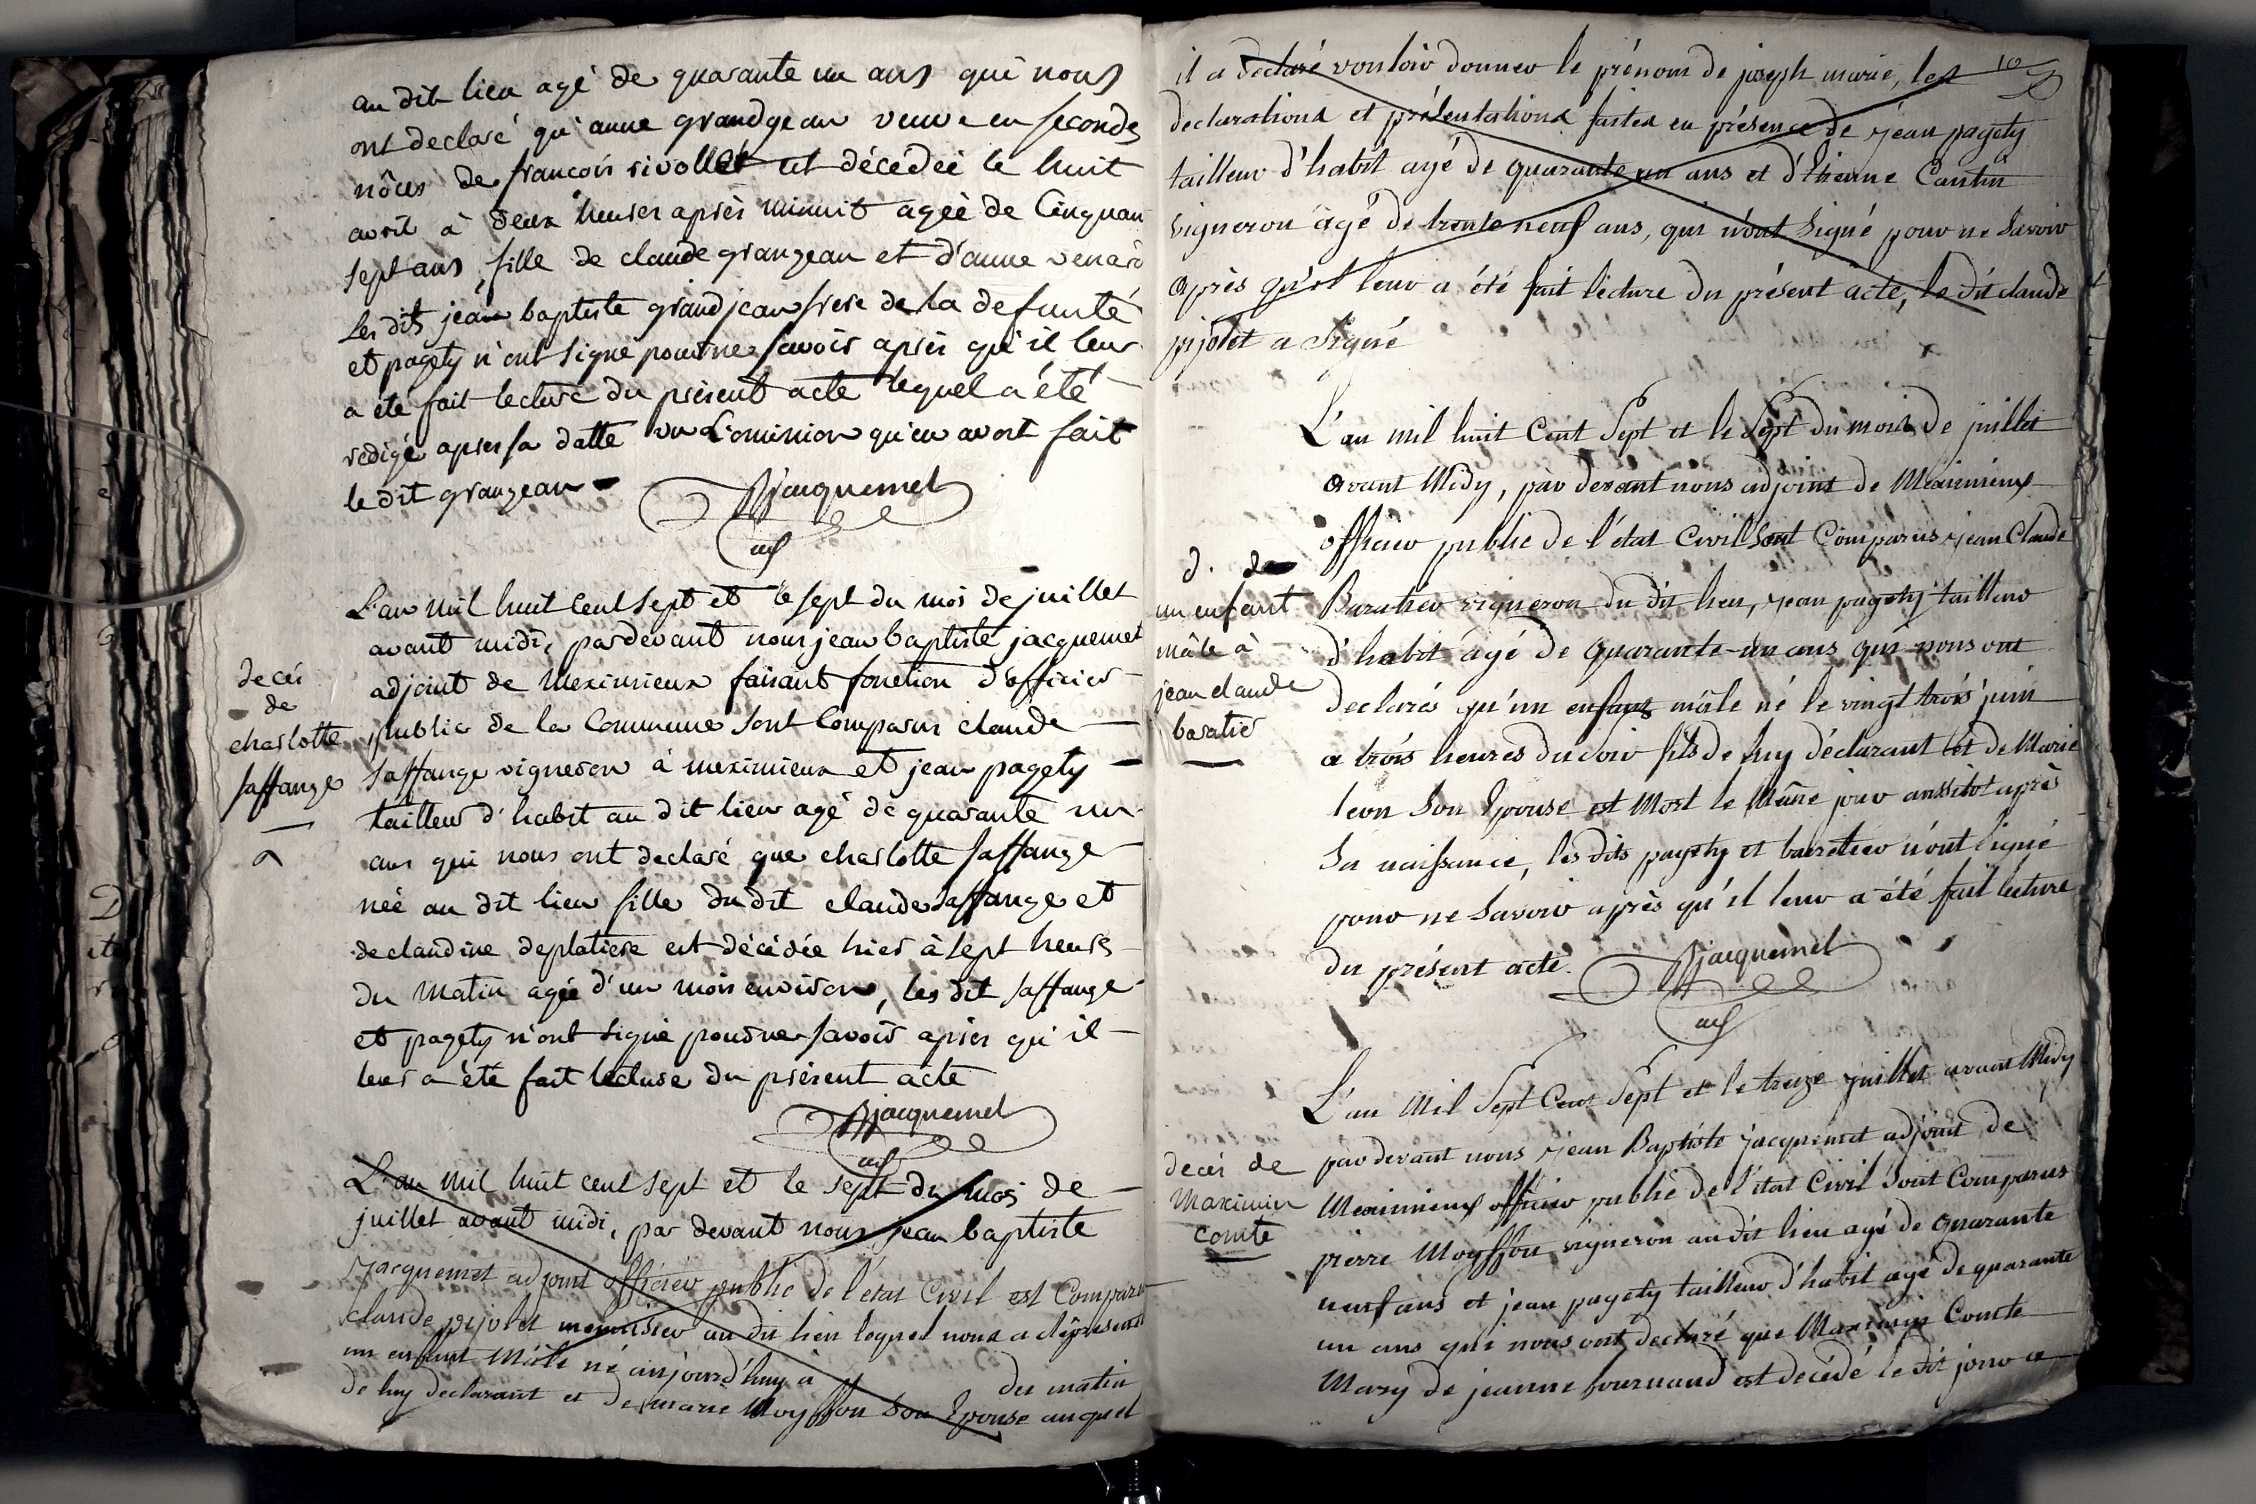 au dit lieu agé de quarante un ans qui nous
ont declaré qu'anne grandgean veuve en secondes
nôces de francois rivollet est décédéé le huit
avril à deux heures après minuit agéé de Cinquan
sept ans, fille de claude grangean et d'anne venard
Les dits jean baptiste grandjean frere de la defunte
et pagety n'ont signé pour ne savoir après qu'il leur
a été fait lecture du présent acte lequel a été
redigé apres sa datte vu L'omission qu'en avoit fait
le dit grangean
Jacquemet
adj
L'an mil huit cent sept et le sept du mois de juillet
avant midi, pardevant nous jean baptiste jacquemet
adjoint de meximieux faisant fonction d'officier
public de la Commune sont Comparus claude
saffange vigneron à meximieux et jean pagety
tailleur d'habit au dit lieu agé de quarante un
ans qui nous ont declaré que charlotte saffange
néé au dit lieu fille du dit claude saffange et
de claudine deplatiere est décédée hier à sept heures
du matin agéé d'un mois environ, les dit saffange
et pagety n'ont signé pour ne savoir après qu'il
leur a été fait lecture du présent acte
decés
de
charlotte
saffange
Jacquemet
adj
L'an mil huit cent sept et le sept du mois de
juillet avant midi, par devant nous jean baptiste
Jacquemet adjoint officier public de l'état Civil est Comparu
claude pijolet menuisier au dit lieu lequel nous a déprésenté
un enfant mâle né aujourd'huy à du matin
de luy declarant et de marie Moyffon son Epouse auquel
10
il a declaré vouloir donner le prénom de joseph marie, les
déclarations et présentations faites en présence de jean pagety
tailleur d'habit agé de quarante un ans et d'Etienne Cantin
vigneron âgé de trente neuf ans, qui n'ont signé pour ne savoir
après qu'il leur a été fait lecture du présent acte, le dit claude
pijolet a signé
L'an mil huit Cent Sept et le Sept du mois de juillet
avant Midy, par devant nous adjoint de Meximieux
officier public de l'état Civil sont Comparus jean Claude
Baratier vigneron du dit lieu, jean pagety tailleur
d'habit âgé de quarante-un ans qui nous ont
declarés qu'un enfant mâle né le vingt trois juin
a trois heures du soir fils de luy déclarant et de Marie
leon Son Epouse est Mort le Même jour aussitot après
Sa naissance, les dits pagety et baratier n'ont signé
pour ne Savoir après qu'il leur a été fait lecture
du présent acte.
d. de
un enfant
mâle à
jean claude
baratier
Jacquemet
adj
L'an Mil Sept Cent Sept et le treize juillet avant Midy
par devant nous jean Baptiste jacquemet adjoint de
Meximieux officier public de l'état Civil Sont Comparus
pierre Moyffon vigneron au dit lieu agé de quarante
neuf ans et jean pagety tailleur d'habit agé de quarante
un ans qui nous ont declaré que Maximin Comte
Mary de jeanne fournaud est decédé le dit jour a
decés de
Maximin
comte